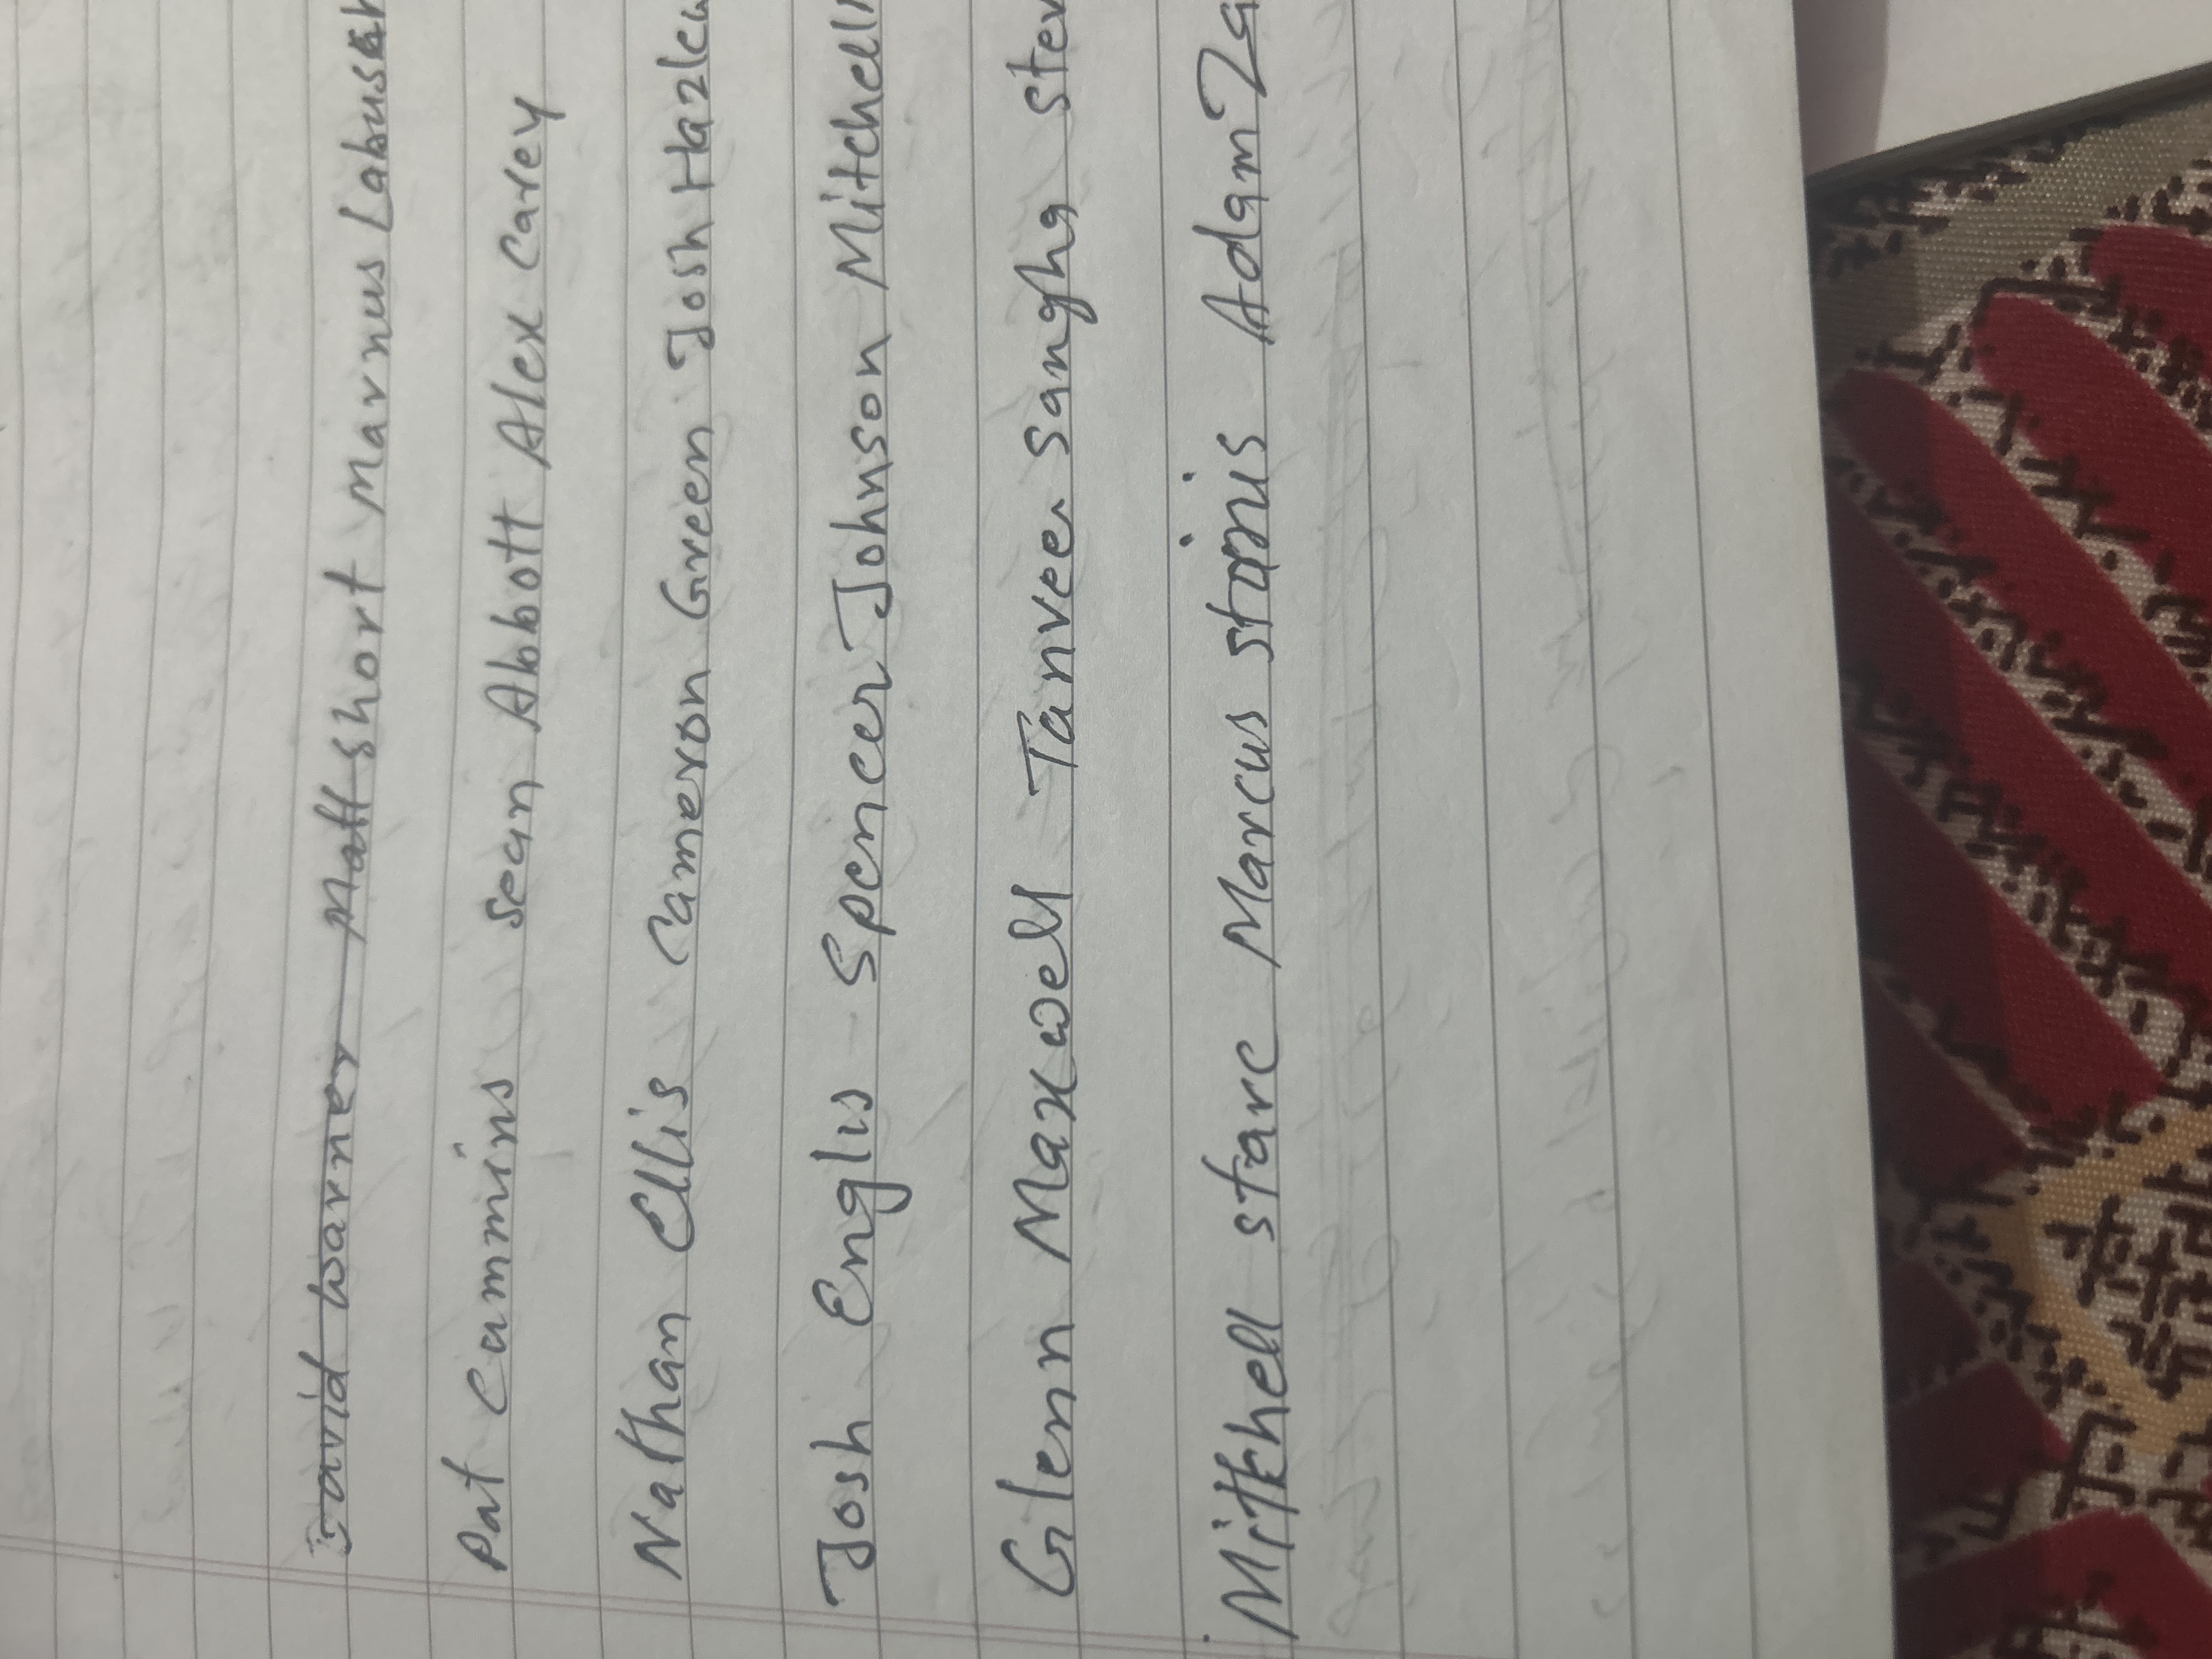 David Warner Matt short Marnus Labusch
Pat Cummins Sean Abbott Alex Carey
Nathan Ellis Cameron Green Josh Hazlew
Josh Englis Spencer Johnson Mitchell
Glenn Maxwell Tanveer Sangha stev
Mitchell starc Marcus stoinis Adam Za